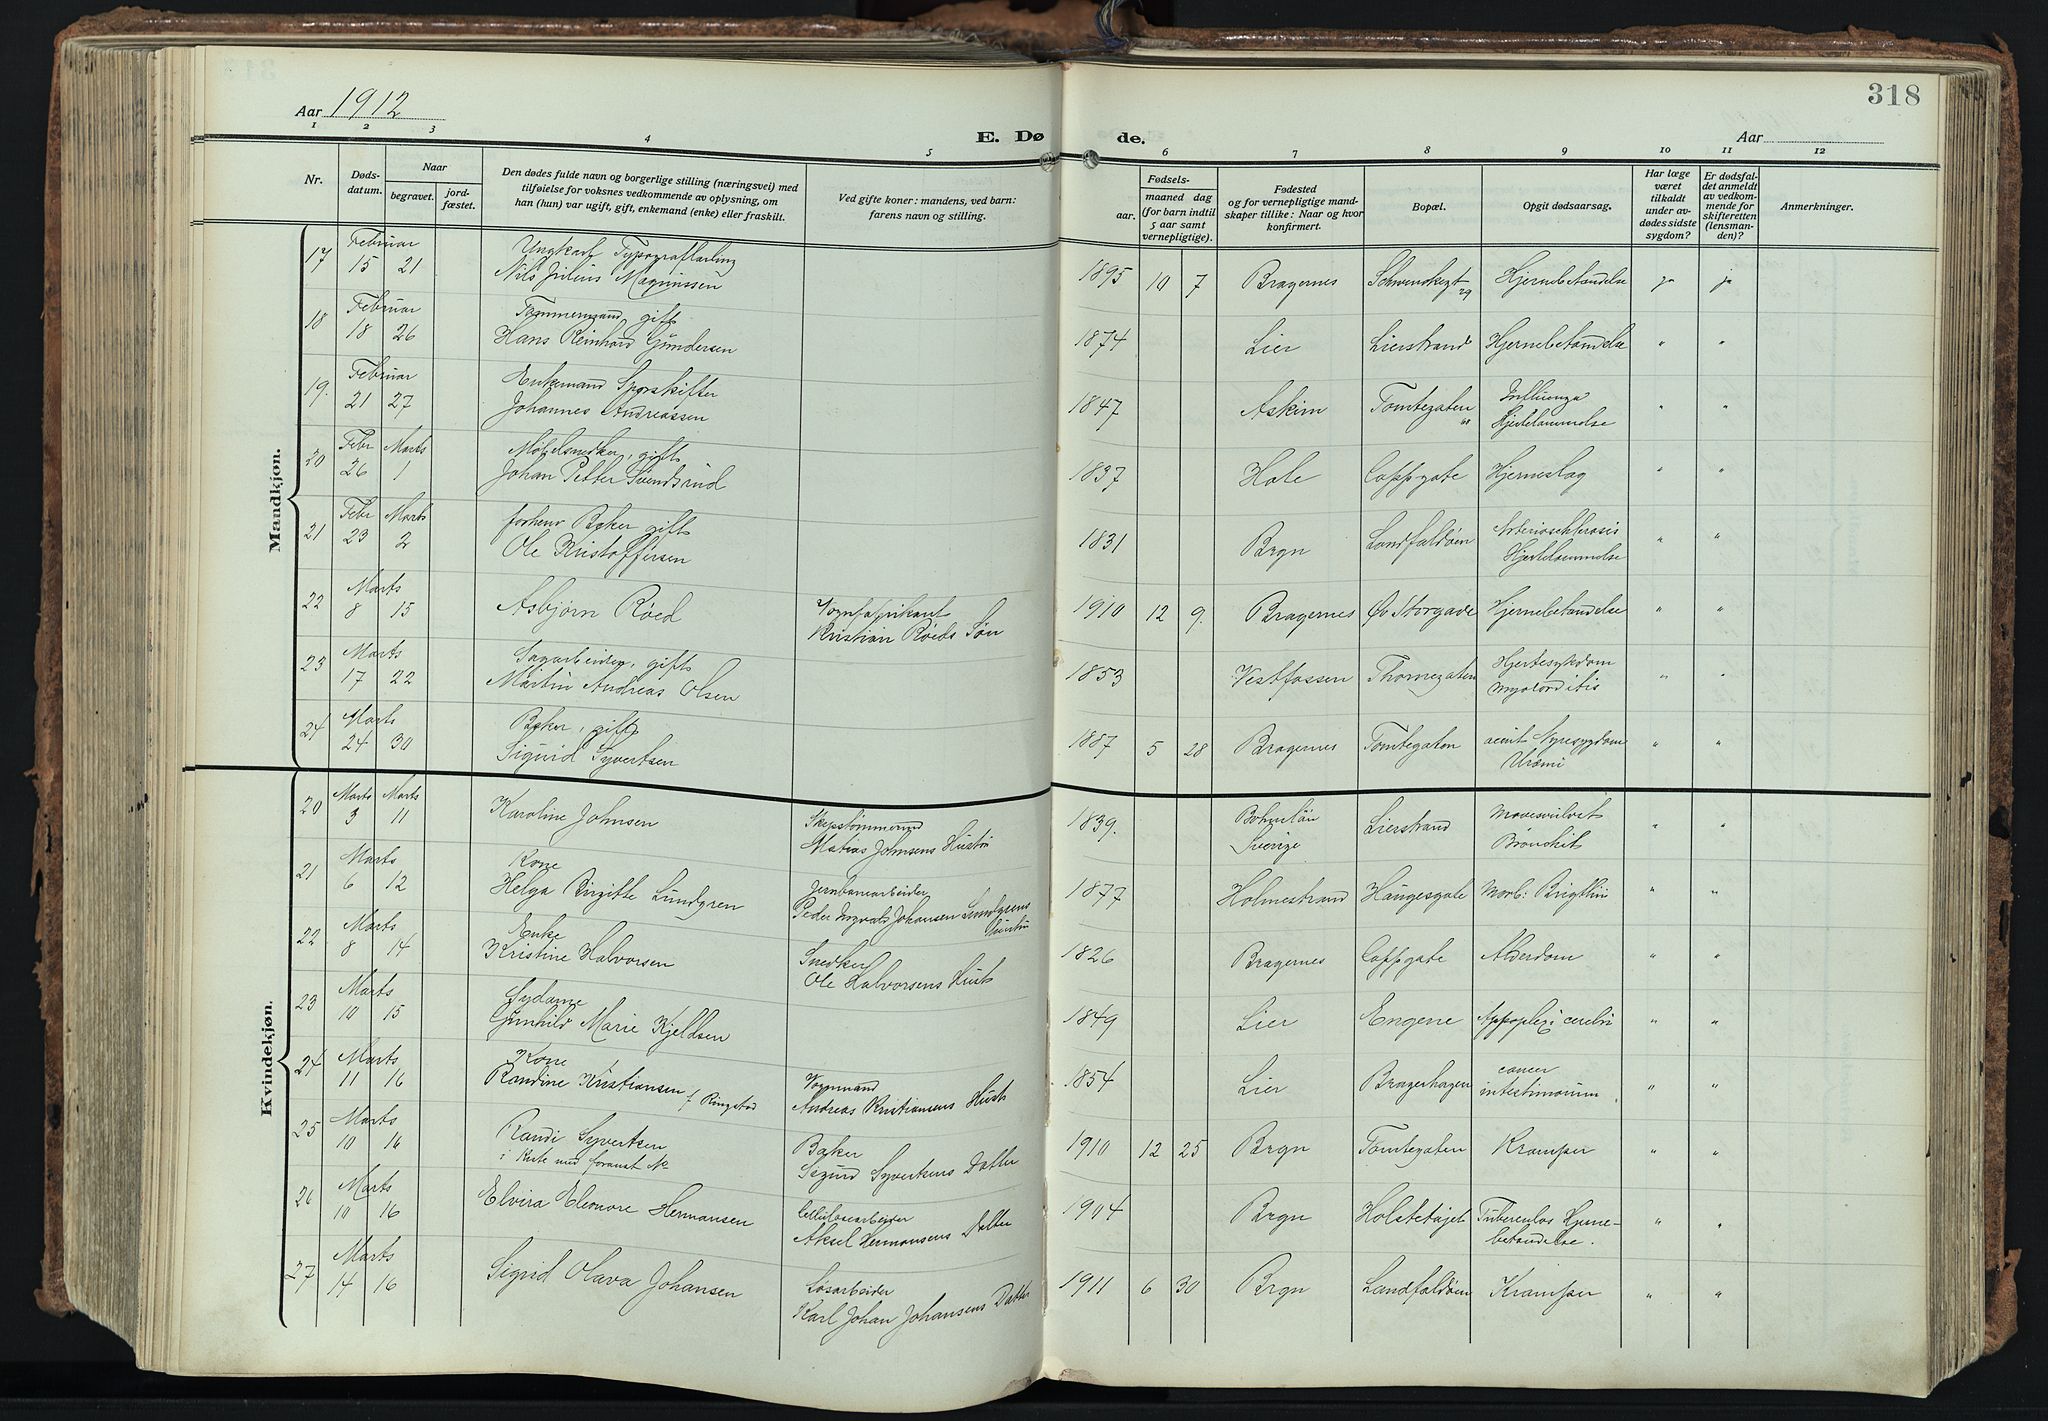 318
Aar 1912
E. Døde.
Aar
1 2 3 4 5 6 7 8 9 10 11 12
Nr.
Døds-
datum.
Naar
begravet.
jord-
fæstet.
Den dødes fulde navn og borgerlige stilling (næringsvei) med
tilføielse for voksnes vedkommende av oplysning, om
han (hun) var ugift, gift, enkemand (enke) eller fraskilt.
Ved gifte koner: mandens, ved barn:
farens navn og stilling.
Fødsels-
aar.
maaned dag
(for barn indtil
5 aar samt
vernepligtige).
Fødested
og for vernepligtige mand-
skaper tillike: Naar og hvor
konfirmert.
Bopæl.
Opgit dødsaarsag.
Har læge
været
tilkaldt
under av-
dødes sidste
sygdom?
Er dødsfal-
det anmeldt
av vedkom-
mende for
skifteretten
(lensman-
den)?
Anmerkninger.
Mandkjøn.
17 Februar 15 21 Ungkarl Typograflærling
Nils Julius Magnussen 1895 10 7 Bragernes Schwenskegt 29 Hjernebetændelse ja ja
18 Februar 18 26 Tømmermand, gift
Hans Reinhard Gundersen 1874 Lier Lierstrand Hjernebetændelse " "
19. Februar 21 27 Enkemand Sporskifter
Johannes Andreassen 1847 Askim Tomtegaten Influenza
Hjertelammelse " "
20 Febr 26 Marts 1 Møbelsnedker, gift
Johan Petter Svendsrud 1837 Hole Coppgate Hjerneslag " "
21 Febr 23 Marts 2 forhenv Baker gift
Ole Kristoffersen 1831 Brgn Landfaldøen Arteriosclerosis
Hjertelammelse " "
22 Marts 8 15 Asbjørn Røed Vognfabrikant
Kristian Røeds Søn 1910 12 9. Bragernes Øv Storgade Hjernebetændelse " "
23 Marts 17 22 Sagarbeider, gift
Martin Andreas Olsen 1853 Vestfossen Thomegaten Hjertesykdom
myocarditis " "
24 Marts 24 30 Baker, gift
Sigurd Syvertsen 1887 5 28 Bragernes Tomtegaten acut Nyresygdom
Uræmi " "
Kvindekjøn.
20 Marts 3 Marts 11 Karoline Johnsen Skipstømmermd
Matias Johnsens Hustru 1839. Bohuslän
Sverige Lierstrand
Bronkit " "
21 Marts 6 12 Kone
Helga Birgitte Lundgren Jernbanearbeider
Peder Ingvald Johansen Lundgrens
Hustru 1877 Holmestrand Haugesgate Morb: Brigthii " "
22 Marts 8 14 Enke
Kristine Halvorsen Snedker
Ole Halvorsens Hust 1826 Bragernes Coppgate Alderdom " "
23 Marts 10 15 Sydame
Gunhild Marie Kjeldsen 1849 Lier Engene Appoplexi cerebri " "
24 Marts 11 16 Kone
Randine Kristiansen f Ringstad Vognmand
Andreas Kristiansens Hust 1854 Lier Bragerhagen cancer
intestinorum " "
25 Marts 10 16 Randi Syvertsen
i Kiste med foranst № Baker
Sigurd Syvertsens Datter 1910 12 25 Brgn Tomtegaten Kramper " "
26 Marts 10 16 Elvira Eleonore Hermansen Cellulosearbeider
Aksel Hermansens Datter 1904 Brgn Holstetøjet Tuberculøs Hjerne-
betændelse. " "
27 Marts 14 16 Sigrid Olava Johansen Løsarbeider
Karl Johan Johansens Datter 1911 6 30 Brgn Landfaldøen Kramper " "